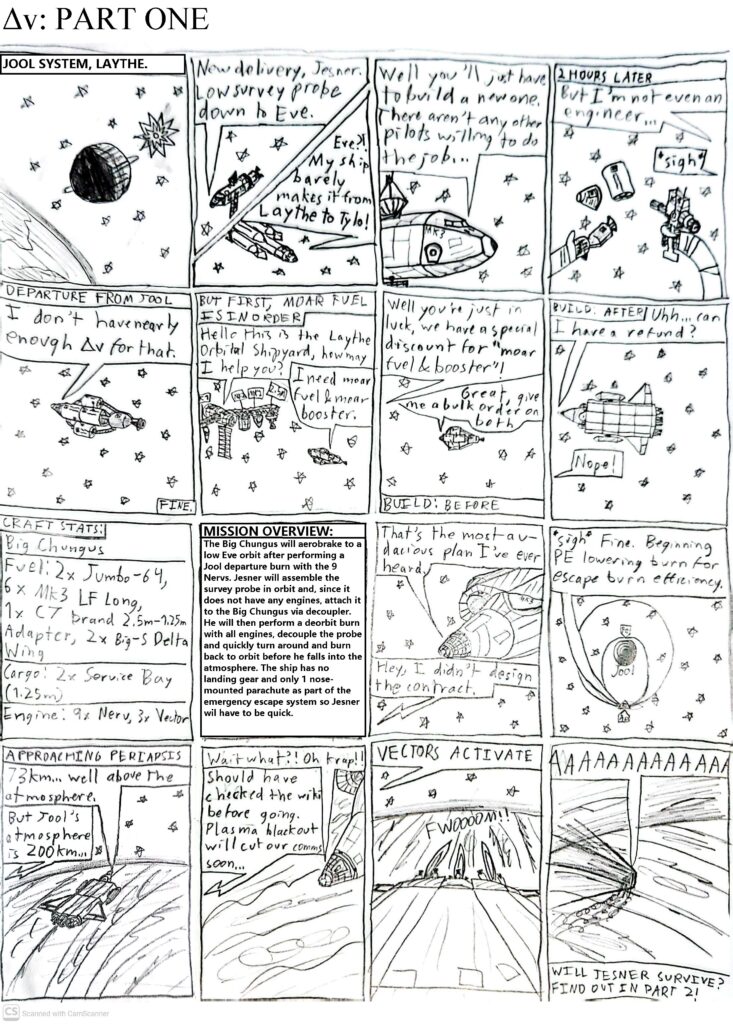 Δv: PART ONE
JOOL SYSTEM, LAYTHE.
New delivery, Jesner.
Low survey probe
down to Eve.
Eve?!
My ship
barely
makes it from
Laythe to Tylo!
Well you'll just have
to build a new one.
There aren't any other
pilots willing to do
the job...
MK3
2 HOURS LATER
But I'm not even an
engineer...
*sigh*
DEPARTURE FROM JOOL
I don't have nearly
enough Δv for that.
FINE.
BUT FIRST, MOAR FUEL
IS IN ORDER
Hello this is the Laythe
Orbital Shipyard, how may
I help you?
I need moar
fuel & moar
booster.
Well you're just in
luck, we have a special
discount for "moar
fuel & booster"!
Great, give
me a bulk order on
both
BUILD: BEFORE
BUILD: AFTER
Uhh... can
I have a refund?
Nope!
CRAFT STATS:
Big Chungus
Fuel: 2x Jumbo-64,
6x Mk3 LF Long,
1x C7 brand 2.5m-1.25m
Adapter, 2x Big-S Delta
Wing
Cargo: 2x Service Bay
(1.25m)
Engine: 9x Nerv, 3x Vector
MISSION OVERVIEW:
The Big Chungus will aerobrake to a
low Eve orbit after performing a
Jool departure burn with the 9
Nervs. Jesner will assemble the
survey probe in orbit and, since it
does not have any engines, attach it
to the Big Chungus via decoupler.
He will then perform a deorbit burn
with all engines, decouple the probe
and quickly turn around and burn
back to orbit before he falls into the
atmosphere. The ship has no
landing gear and only 1 nose-
mounted parachute as part of the
emergency escape system so Jesner
wil have to be quick.
That's the most au-
dacious plan I've ever
heard.
Hey, I didn't design
the contract.
*sigh* Fine. Beginning
PE lowering burn for
escape burn efficiency.
Pe
Jool
Ap
APPROACHING PERIAPSIS
73km... well above the
atmosphere.
But Jool's
atmosphere
is 200km...
Wait what?! Oh krap!!
Should have
checked the wiki
before going.
Plasma blackout
will cut our comms
soon...
VECTORS ACTIVATE
FWOOOOM!!
AAAAAAAAAAAAA
WILL JESNER SURVIVE?
FIND OUT IN PART 2!
CS Scanned with CamScanner